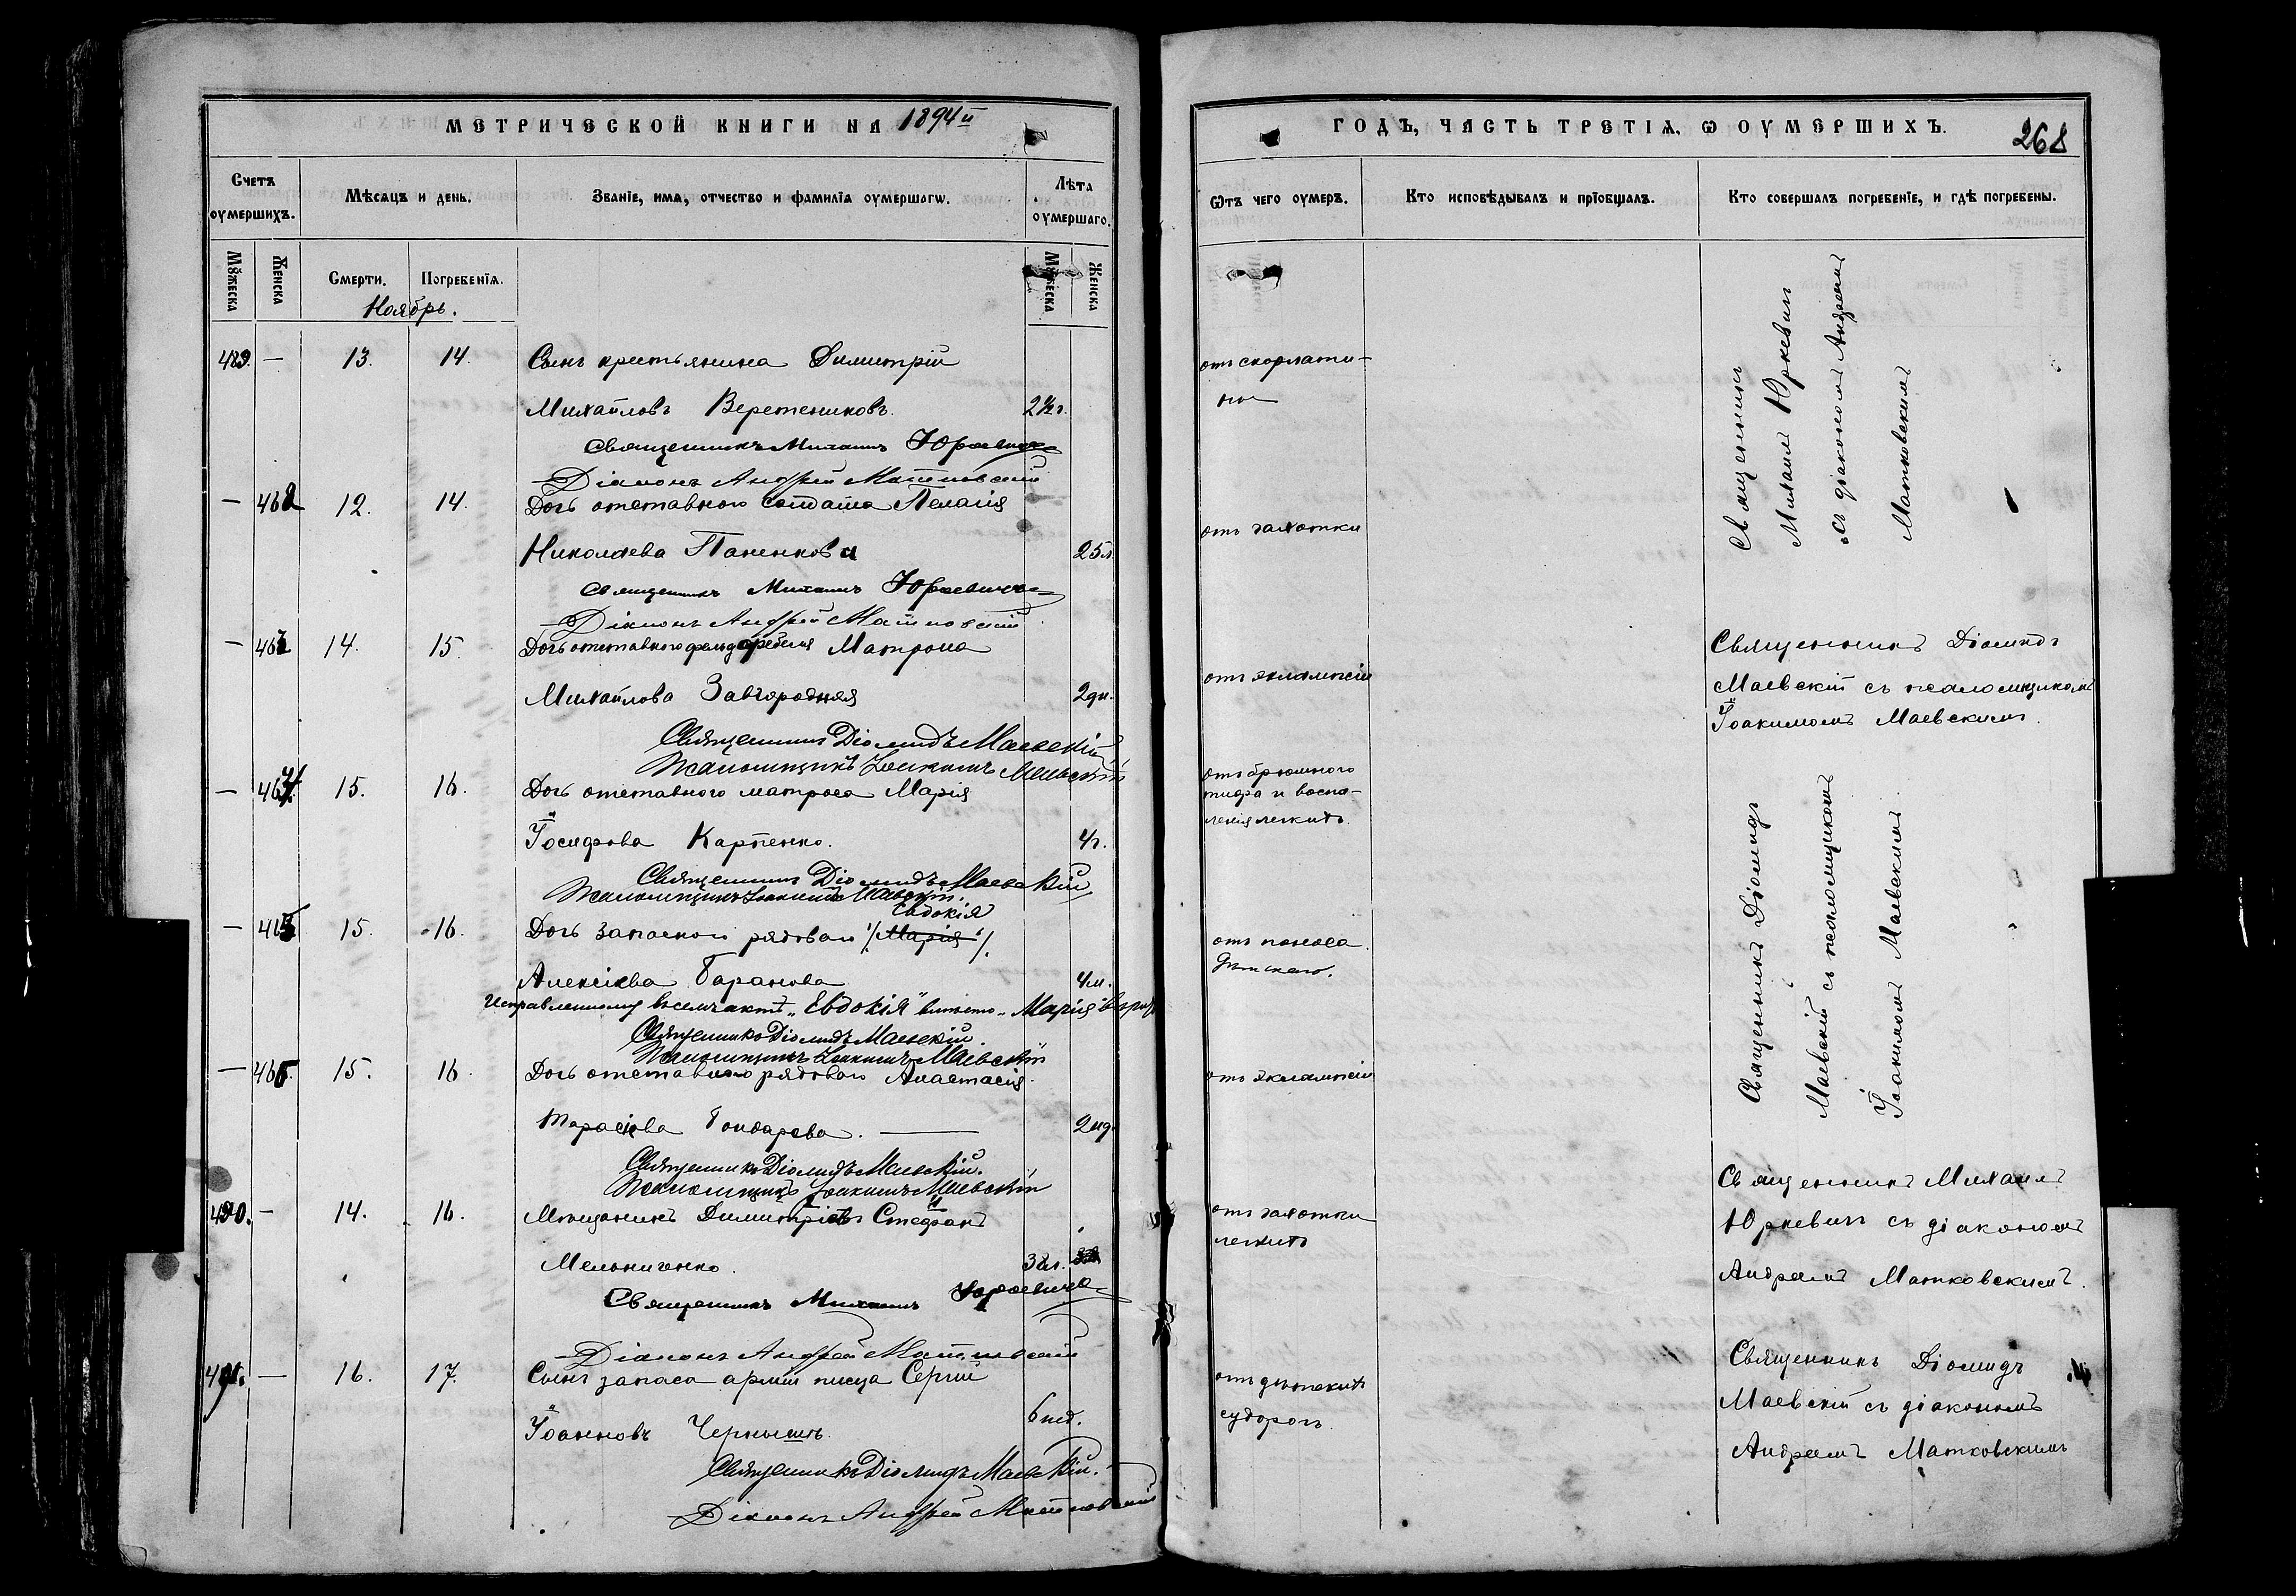 МЕТРИЧЕСКОЙ КНИГИ НА 1894й
Счетъ оумершихъ.
Мѣсяцъ и день.
Званіе, имя, отчество и фамилія оумершагѡ.
Лѣта оумершаго.
Мꙋжеска
Женска
Смерти.
Погребенія.
Мꙋжеска
Женска
Ноябрь.
489. — 13. 14. Сынъ крестьянина Димитрій
Михайловъ Веретениковъ. 2½г.
Священникъ Михаилъ Юркевичъ
Діаконъ Андрей Матковскій
— 462 12. 14. Дочь отставного солдата Пелагія
Николаева Паненкова 25л.
Священникъ Михаилъ Юркевичъ
Діаконъ Андрей Матковскій
— 463 14. 15. Дочь отставного фельдфебеля Матрона
Михайлова Завгородняя 2дн.
Священникъ Діомидъ Маевскій
Псаломщикъ Іоакимъ Маевскій
— 464. 15. 16. Дочь отставного матроса Марія
Іосифова Карпенко. 4г.
Священникъ Діомидъ Маевскій
Псаломщикъ Іоакимъ Маевскій.
Евдокія
— 465 15. 16. Дочь запасного рядового /Марія/.
Алексіева Баранова 4м.
Исправленному въ семъ актѣ „Евдокія" вмѣсто „Марія" вѣрить
Священникъ Діомидъ Маевскій.
Псаломщикъ Іоакимъ Маевскій
— 466. 15. 16. Дочь отставного рядового Анастасія
Тарасіева Гондарева. 2нд.
Священникъ Діомидъ Маевскій.
Псаломщикъ Іоакимъ Маевскій
490. — 14. 16. Мѣщанинъ Димитріевъ Стефанъ
Мельниченко.
Священникъ Михаилъ Юркевичъ
Діаконъ Андрей Матковскій
491. — 16. 17. Сынъ запаса арміи писца Сергій
Іоанновъ Чернышъ. 6нд.
Священникъ Діомидъ Маевскій.
Діаконъ Андрей Матковскій
ГОДЪ, ЧАСТЬ ТРЕТІЯ, Ѡ ОУМЕРШИХЪ.
268
Ѿтъ чего оумеръ.
Кто исповѣдывалъ и пріобщалъ.
Кто совершалъ погребеніе, и гдѣ погребены.
отъ скарлати-
ны
Священникъ
Михаилъ Юркевичъ
съ діакономъ Андреемъ
Матковскимъ
отъ чахотки
отъ эклампсіи
Священникъ Діомидъ
Маевскій съ псаломщикомъ
Іоакимомъ Маевскимъ.
отъ брюшного
тифа и воспа-
ленія легкихъ.
Священникъ Діомидъ
Маевскій съ псаломщикомъ
Іоакимомъ Маевскимъ.
отъ поноса
дѣтскаго.
отъ эклампсіи
отъ чахотки
легкихъ
Священникъ Михаилъ
Юркевичъ съ діакономъ
Андреемъ Матковскимъ.
отъ дѣтскихъ
судорогъ.
Священникъ Діомидъ
Маевскій съ діакономъ
Андреемъ Матковскимъ